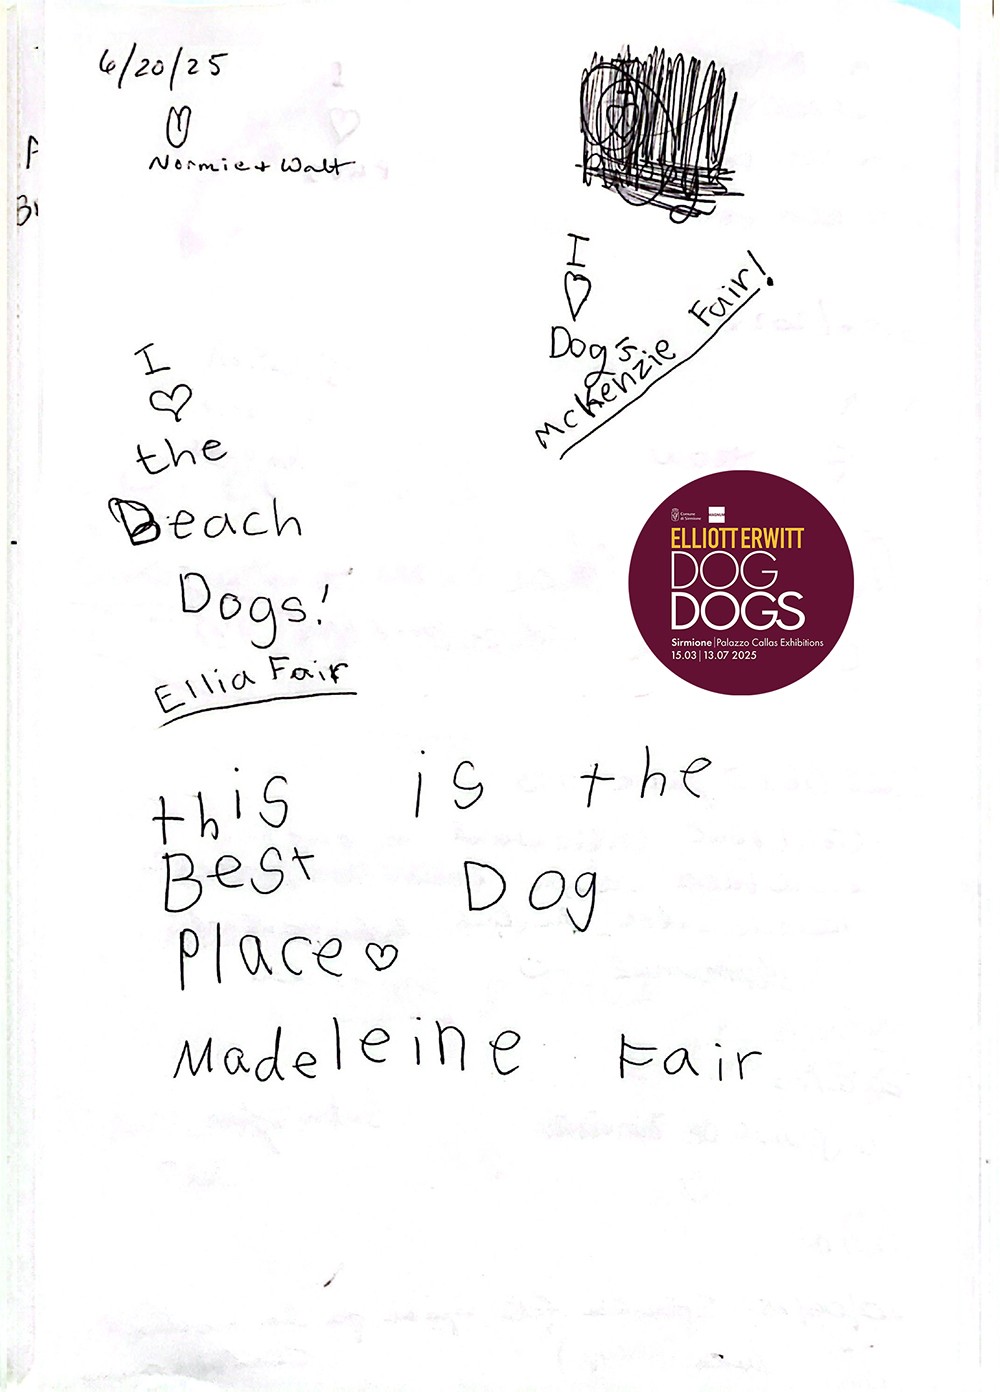 6/20/25
Normie + Walt
I
Dog's
McKenzie Fair!
I
the
Beach
Dogs!
Ellia Fair
Comune
di Sirmione
MAGNUM
ELLIOTT ERWITT
DOG
DOGS
Sirmione | Palazzo Callas Exhibitions
15.03 | 13.07 2025
this is the
Best Dog
Place
Madeleine Fair